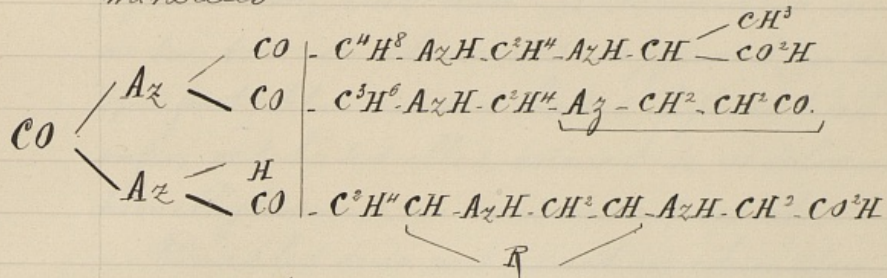 CH³
CO - C⁴H⁸- AzH - C²H⁴ - AzH - CH - CO²H
Az
CO - C³H⁶- AzH - C²H⁴ - Az - CH² - CH² CO.
CO
H
Az
CO - C²H⁴ CH - AzH - CH² - CH - AzH - CH² - CO²H
R